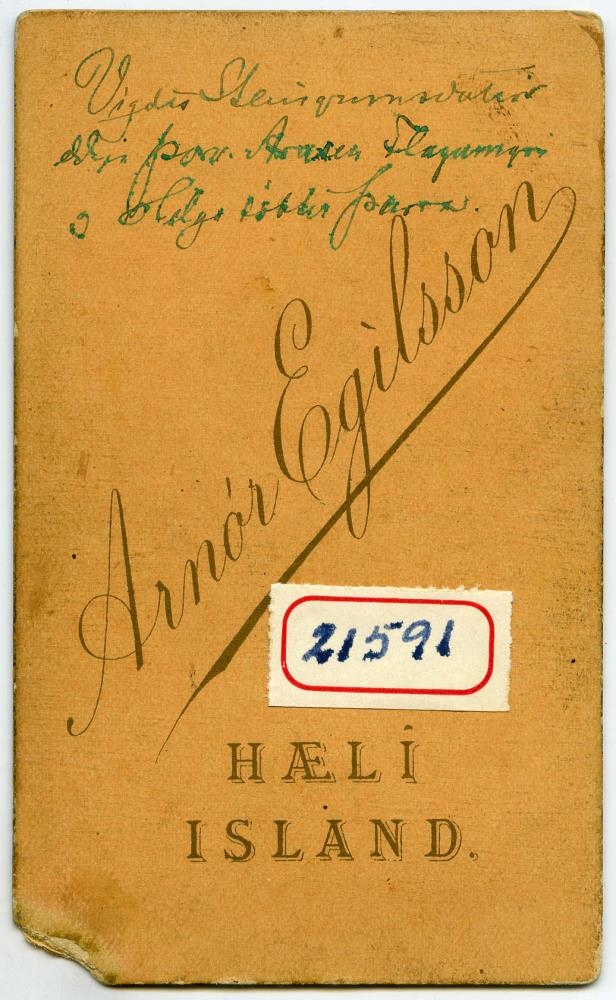 Vigdís Steingrímsdóttir
Þorv. Arasen Flugumýri
og Helga dóttir þeirra.
Arnór Egilsson
21591
HÆLI
ISLAND.